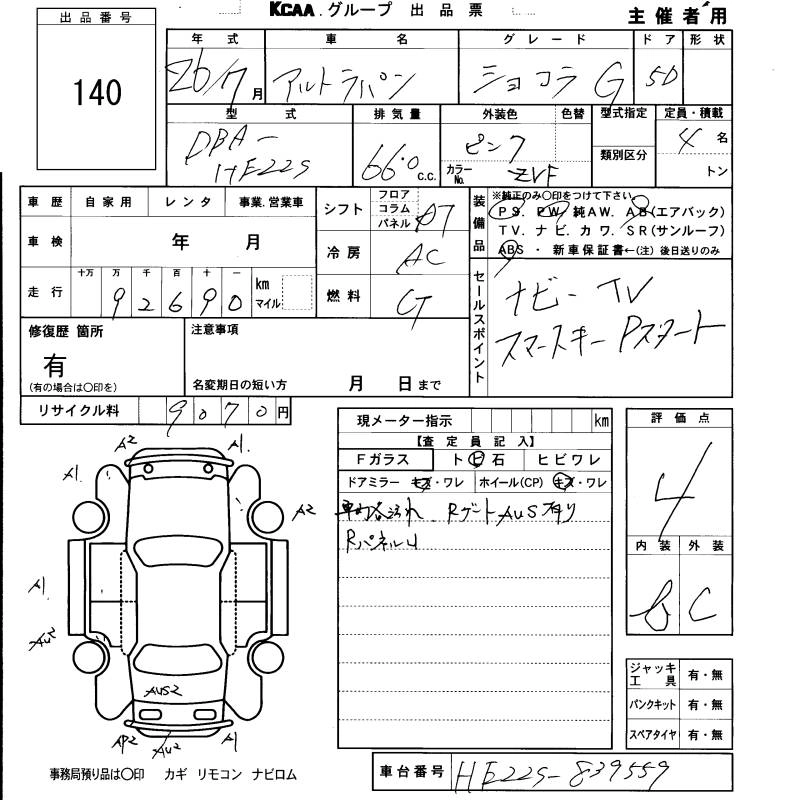 KCAA.グループ 出品票
主催者用
出品番号
140
年式 車名 グレード ドア 形状
26/7月 アルトラパン ショコラ G 5D
型式 排気量 外装色 色替 型式指定 定員・積載
DBA-
HE22S
660 c.c.
ピンク
カラーNo. ZVF
類別区分
4名
トン
車歴 自家用 レンタ 事業.営業車
車検 年 月
走行 十万 万 千 百 十 一
92690 km
マイル
シフト フロア コラム パネル AT
冷房 AC
燃料 G
装備品
※純正のみ〇印をつけて下さい。
PS. PW. 純AW. AB(エアバック)
TV. ナビ. カワ. SR(サンルーフ)
ABS・新車保証書←(注)後日送りのみ
セールスポイント
ナビー TV
スマースキー Pスタート
修復歴 箇所
有
(有の場合は〇印を)
注意事項
名変期日の短い方 月 日まで
リサイクル料 9070円
現メーター指示 km
【査定員記入】
Fガラス ト ビ 石 ヒビワレ
ドアミラー キズ・ワレ ホイール(CP) キズ・ワレ
Rゲート AUSアリ
RパネルU
評価点
4
内装 外装
B C
A2 A1
A1
A2
A1
AU2
AUS2
AP2 AU2 A1
ジャッキ
工具 有・無
パンクキット 有・無
スペアタイヤ 有・無
事務局預り品は〇印 カギ リモコン ナビロム
車台番号 HE22S-839559